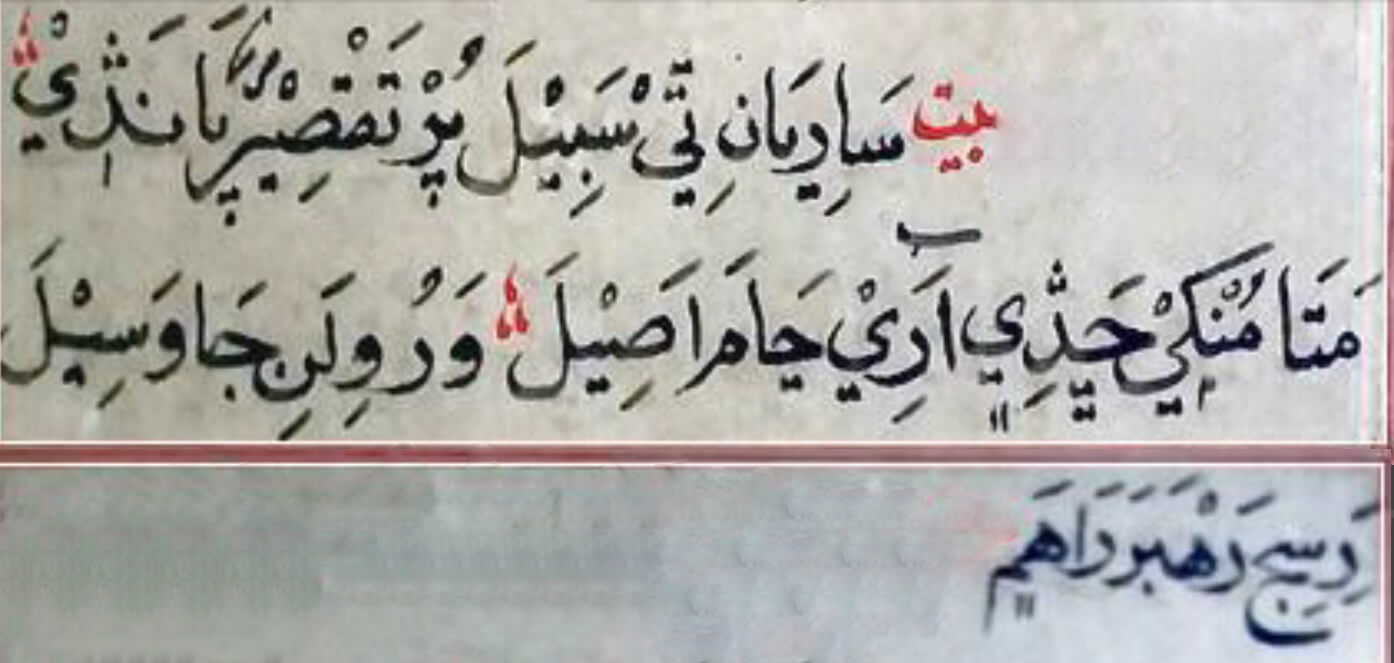 بيت سَاِديَانِ تِيْ سَبِيْلَ پُرْ تَقْصِيْر پَانڌِيْ
مَتَا مُنْکِيْ ڇَڏِيِ آرِيْ ڄَامَ اَصِيْلَ وَرُ وِلَنِ جَا وَسِيْلَ
دِسِجَ رَهْبَرَ رَاهَمِ